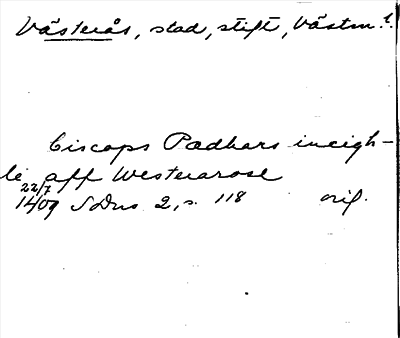 Västerås, stad, stift, Västm. l.
biscops Pædhars incigh-
le aff Westerarosl
22/7
1409 SDns 2, s. 118 orig.